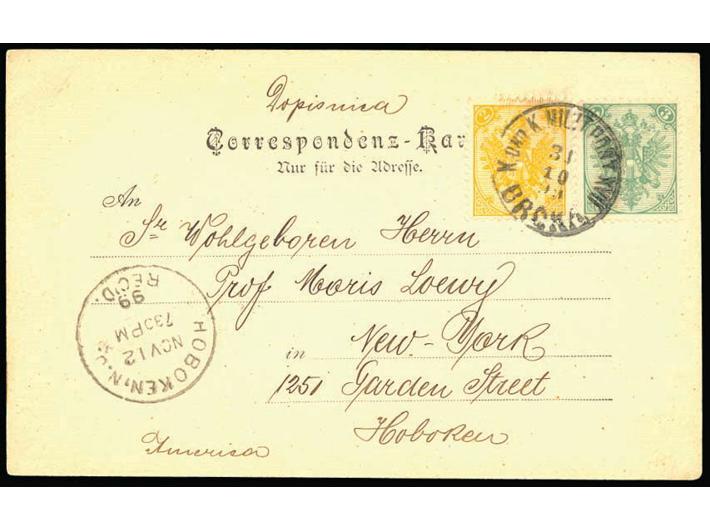 Dopisnica
Correspondenz-Kar
Nur für die Adresse.
2
3
K. UND K. MILIT. POST XVII
31
10
99
BRČKA
An
Sr Wohlgeboren Herrn
Prof Moris Loewy
in New-York
1251 Garden Street
Hoboken
America
HOBOKEN, N.J.
NOV 12
730 PM
99
REC'D.